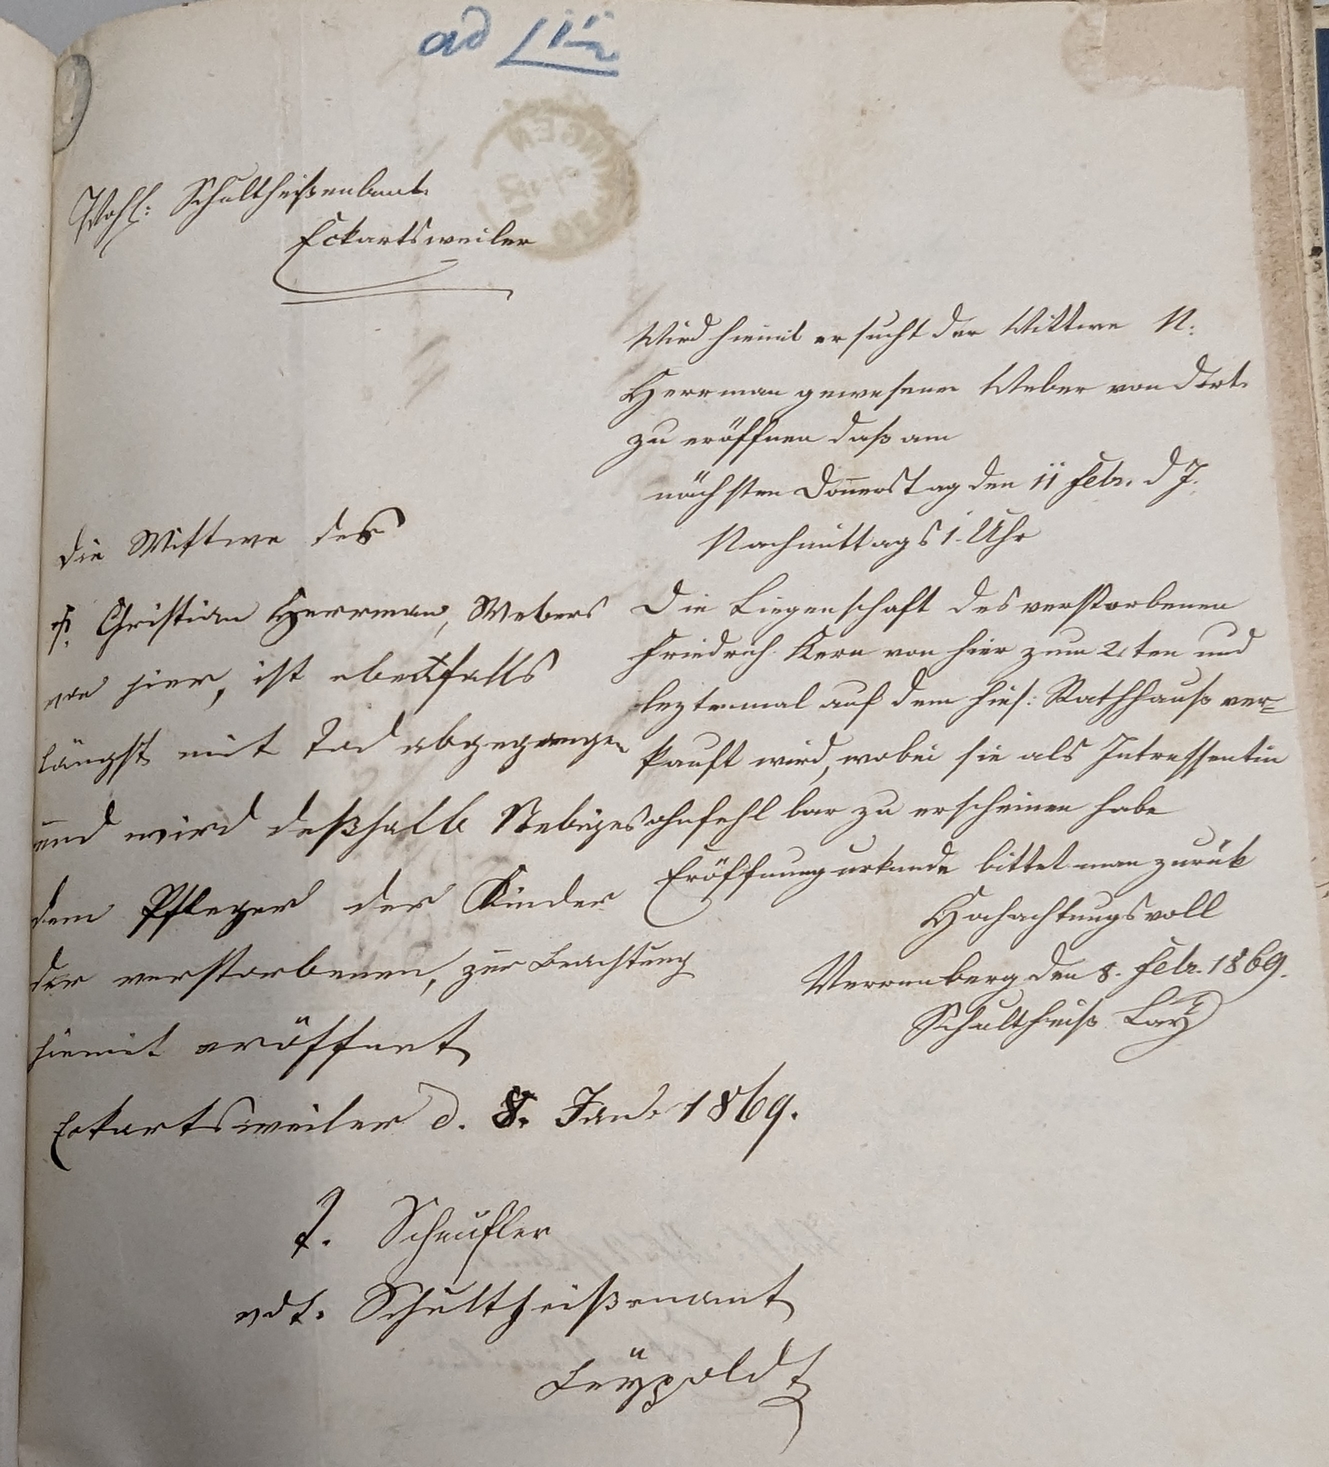 ad
Wohl: Schultheißenamt
Eckartsweiler
Wird hiemit ersucht der Wittwe N:
Herrman gewesener Weber von dort
zu eröffnen daß am
nächsten Donnerstag den 11 Febr. d J.
Nachmittags 1. Uhr
Die Liegenschaft des verstorbenen
Friedrich Kern von hier zum 2ten und
leztenmal auf dem hies: Rathhauß ver-
kauft wird, wobei sie als Intressentin
ohnfehlbar zu erscheinen habe
Eröffnungurkunde bittet man zurük
Hochachtungsvoll
Verrenberg den 8. Febr. 1869.
Schultheiß Lay
Die Wittwe des
Christian Herrman, Webers
von hier, ist ebenfalls
längst mit Tod abgegangen
und wird deßhalb Nebiges
dem Pfleger der Kinder
der verstorbenen, zur Beachtung
hiemit eröffnet
Eckartsweiler d. 8. Jan. 1869.
T. Scheufler
vdt. Schultheißenamt
Leypoldt